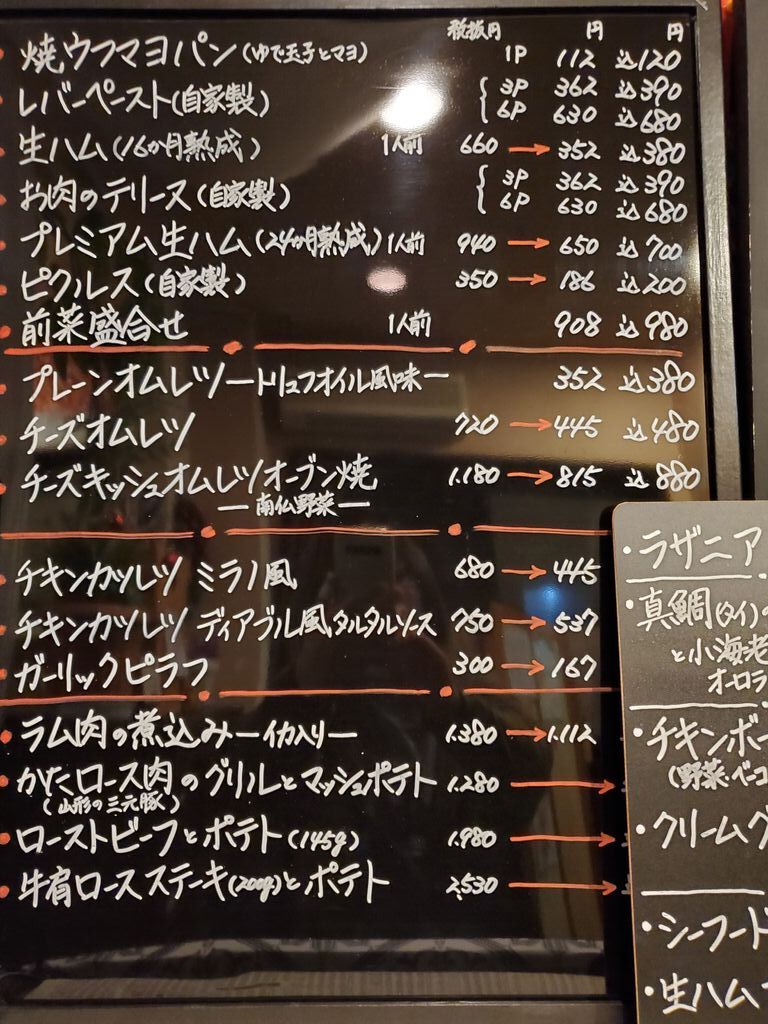 税抜円 円 円
焼ウフマヨパン(ゆで玉子とマヨ) 1P 112 込120
レバーペースト(自家製) { 3P 362 込390
6P 630 込680
生ハム(16か月熟成) 1人前 660 → 352 込380
お肉のテリーヌ(自家製) { 3P 362 込390
6P 630 込680
プレミアム生ハム(24か月熟成) 1人前 940 → 650 込700
ピクルス(自家製) 350 → 186 込200
前菜盛合せ 1人前 908 込980
プレーンオムレツートリュフオイル風味ー 352 込380
チーズオムレツ 720 → 445 込480
チーズキッシュオムレツオーブン焼 1.180 → 815 込880
ー南仏野菜ー
チキンカツレツ ミラノ風 680 → 445
チキンカツレツ ディアブル風タルタルソース 750 → 537
ガーリックピラフ 300 → 167
ラム肉の煮込みーイカ入りー 1.380 → 1.112
かたロース肉のグリルとマッシュポテト 1.280 →
(山形の三元豚)
ローストビーフとポテト(145g) 1.980 →
牛肩ロースステーキ(200g)とポテト 2,530 →
・ラザニア
・真鯛(タイ)の
と小海老
オーロラ
・チキンボー
(野菜・ベーコ
・クリームグ
・シーフード
・生ハム